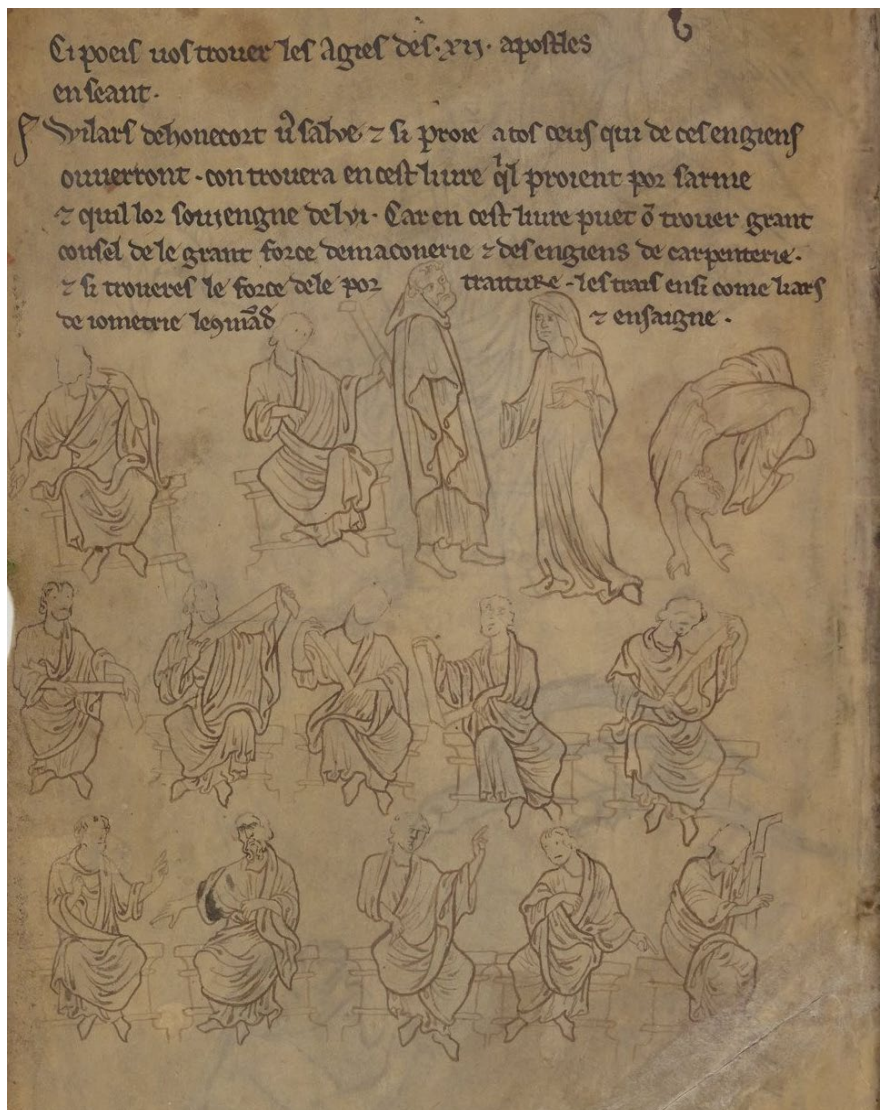 Ci poeis uos trouer les agies des .xij. apostles
en seant.
Wilars dehonecort v̄ salve ⁊ si proie a tos ceus qui de ces engiens
ouuerront. con trouera en cest liure q̓l proient por sarme
⁊ quil lor souiengne de lvi. Car en cest liure puet ō trouer grant
consel de le grant force de maconerie ⁊ des engiens de carpenterie.
⁊ si troueres le force de le por traiture. les trais ensi come liars
de iometrie le ꝯmād ⁊ ensaigne.